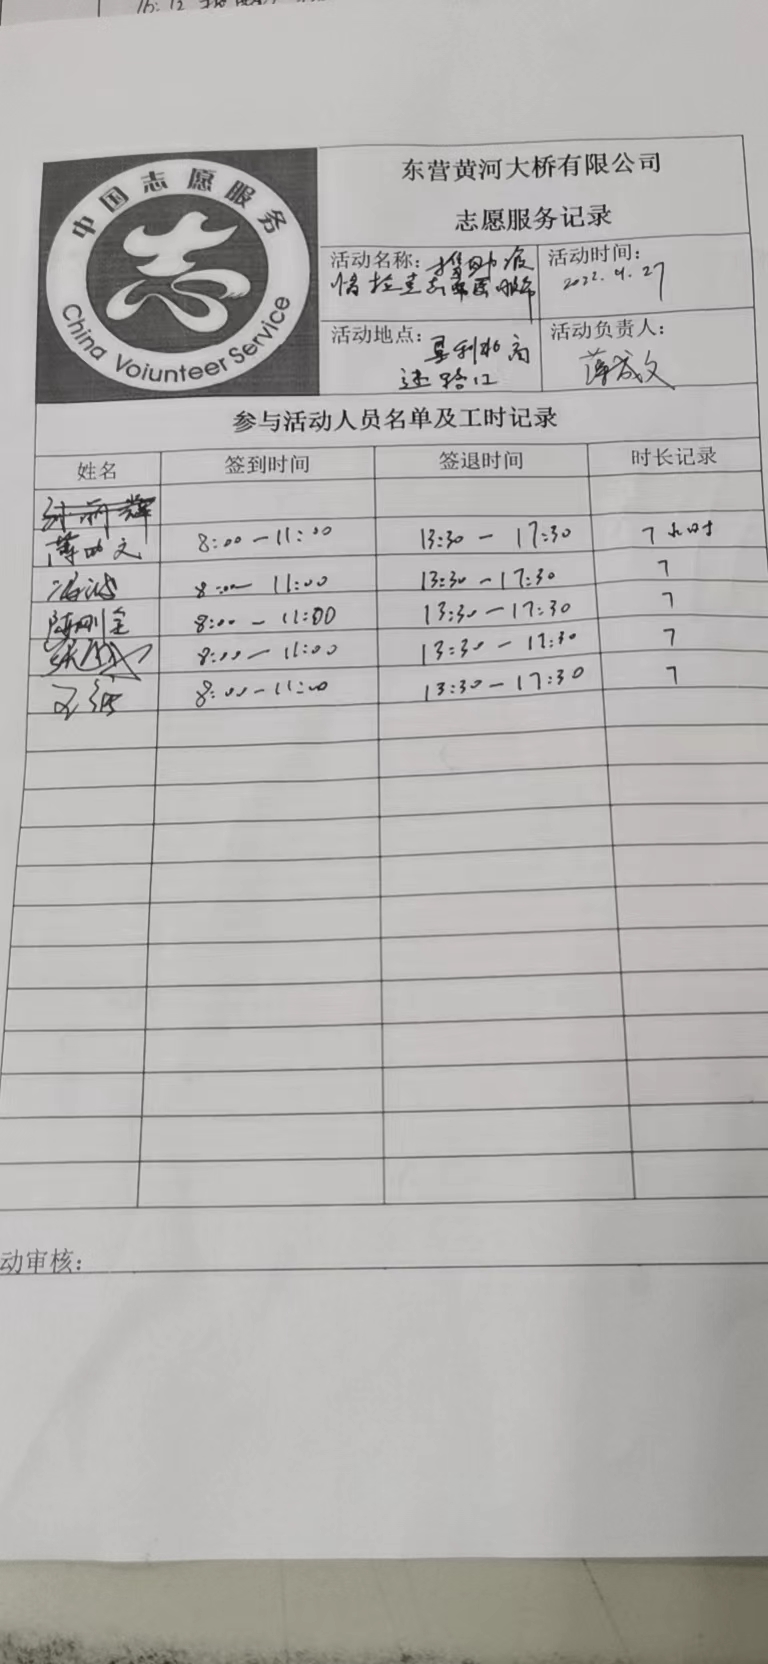 中国志愿服务
China Voiunteer Service
东营黄河大桥有限公司
志愿服务记录
活动名称：协助疫
情检查志愿服务
活动时间：
2022.4.27
活动地点：垦利北高
速路口
活动负责人：
参与活动人员名单及工时记录
姓名 签到时间 签退时间 时长记录
8:00－11:00 13:30－17:30 7小时
8:00－11:00 13:30－17:30 7
8:00－11:00 13:30－17:30 7
8:00－11:00 13:30－17:30 7
8:00－11:00 13:30－17:30 7
动审核：